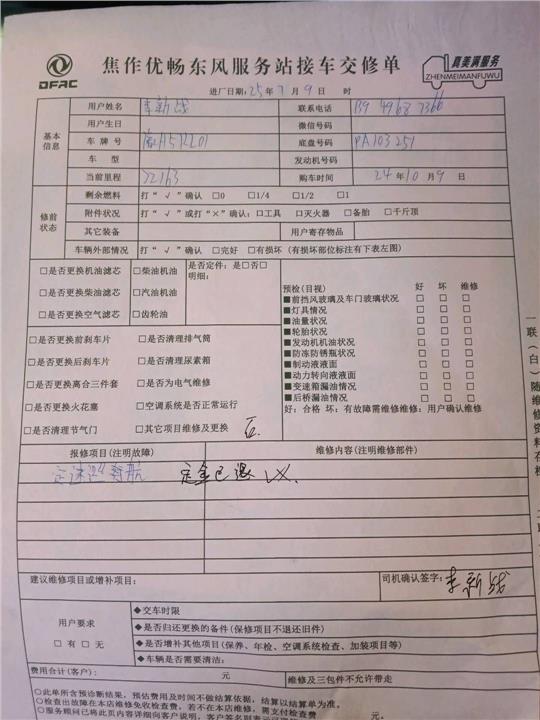 DFAC
焦作优畅东风服务站接车交修单
真美满服务
ZHENMEIMANFUWU
进厂日期:25年7月9日 时
基本信息
用户姓名 李新战 联系电话
用户生日 微信号码
车牌号 底盘号码 PA103251
车型 发动机号码
当前里程 22163 购车时间 24年10月9日
修前状态
剩余燃料 打“√”确认 □0 □1/4 □1/2 □1
附件状况 打“√”或打“×”确认:□工具 □灭火器 □备胎 □千斤顶
其它装备 用户寄存物品
车辆外部情况 打“√”确认 □完好 □有损坏(有损坏部位标注有下表左图)
□是否更换机油滤芯 □柴油机油 是否定件:是□否□
明细:
□是否更换柴油滤芯 □汽油机油
□是否更换空气滤芯 □齿轮油
□是否更换前刹车片 □是否清理排气筒
□是否更换后刹车片 □是否清理尿素箱
□是否更换离合三件套 □是否为电气维修
□是否更换火花塞 □空调系统是否正常运行
□是否清理节气门 □其它项目维修及更换
预检(目视) 好 坏 维修
■前挡风玻璃及车门玻璃状况 □ □ □
■灯具情况 □ □ □
■油量状况 □ □ □
■轮胎状况 □ □ □
■发动机机油状况 □ □ □
■防冻防锈瓶状况 □ □ □
■制动液液面 □ □ □
■动力转向液液面 □ □ □
■变速箱漏油情况 □ □ □
■后桥漏油情况 □ □ □
好:合格 坏:有故障需维修维修:用户确认维修
报修项目(注明故障) 维修内容(注明维修部件)
定速巡航 定金已退
建议维修项目或增补项目: 司机确认签字:李新战
用户要求
□有 □无
◆交车时限
◆是否归还更换的备件(保修项目不退还旧件)
◆是否增补其他项目(保养、年检、空调系统检查、加装项目等)
◆车辆是否需要清洁:
费用合计(客户): 元 维修及三包件不允许带走
○此单所含预诊断结果,预估费用及时间不做结算依据,结算以结算单为准。
○检查出故障在本店维修免收检查费,若不在本店维修,需支付检查费 元。
一联(白)随维修资料存档